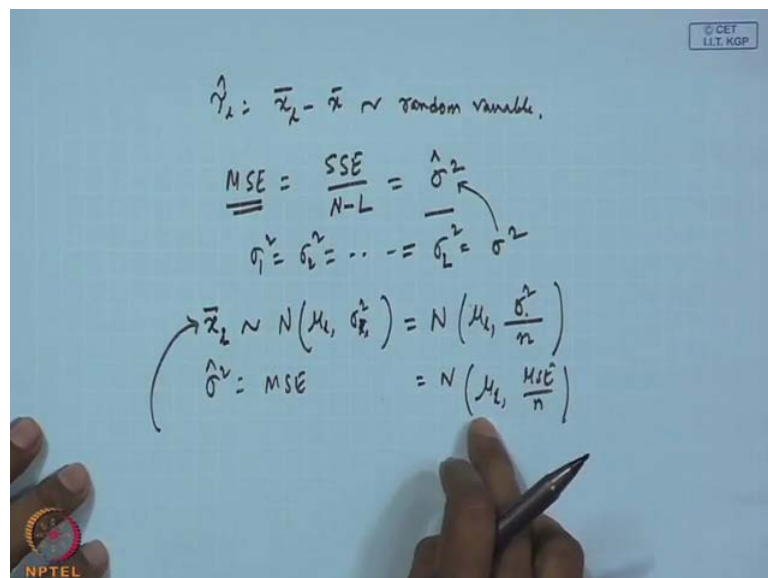 © CET
I.I.T. KGP
τ̂_l = x̄_l - x̄ ~ random variable.
MSE = SSE / (N-L) = σ̂²
σ₁² = σ₂² = ... = σ_L² = σ²
x̄_l ~ N(μ_l, σ²_x̄) = N(μ_l, σ²/n)
σ̂² = MSE = N(μ_l, MSE/n)
NPTEL